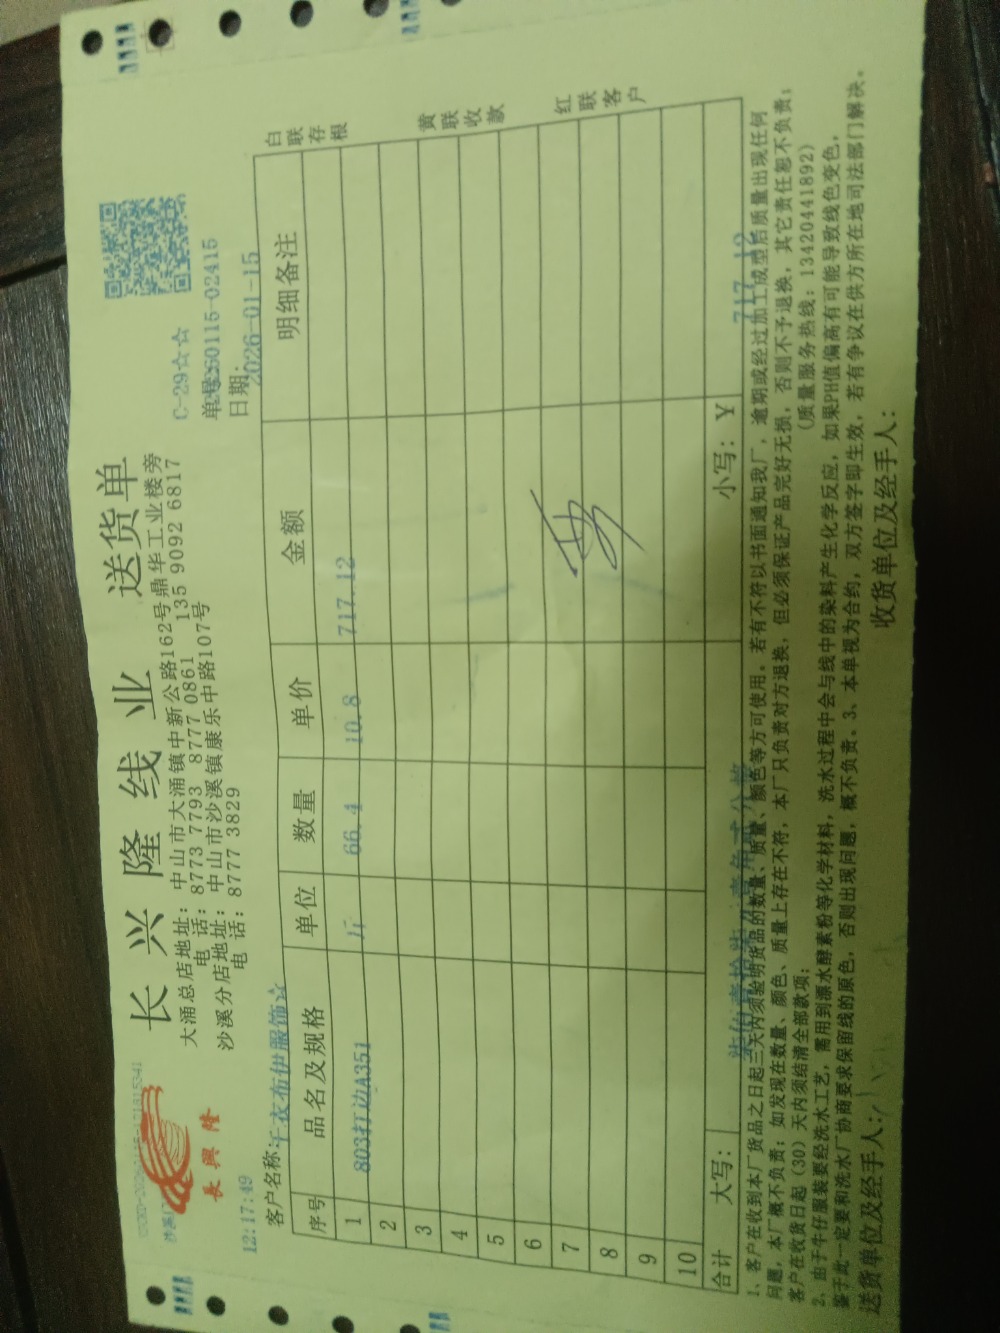 长兴隆线业 送货单
大涌总店地址：中山市大涌镇中新公路162号鼎华工业楼旁
电 话：8773 7793 8777 0861 135 9092 6817
沙溪分店地址：中山市沙溪镇康乐中路107号
电 话：8777 3829
長興隆
12:17:49
C-29☆☆
单号:
0115-02415
日期:
2026-01-15
客户名称:
衣布伊服饰☆
序号 品名及规格 单位 数量 单价 金额 明细备注
1 803打边A351 66.4 10.8 717.12
2
3
4
5
6
7
8
9
10
合计 大写: 小写: Y 717.12
白联存根
黄联收款
红联客户
1、客户在收到本厂货品之日起三天内须验明货品的数量、质量、颜色等方可使用。若有不符以书面通知我厂，逾期或经过加工成型后质量出现任何
问题，本厂概不负责；如发现在数量、颜色、质量上存在不符，本厂只负责对方退换，但必须保证产品完好无损，否则不予退换，其它责任恕不负责；
客户在收货日起（30）天内须结清全部款项； (质量服务热线：13420441892)
2、由于牛仔服装要经洗水工艺，需用到漂水酵素粉等化学材料，洗水过程中会与线中的染料产生化学反应，如果PH值偏高有可能导致线色变色，
鉴于此一定要和洗水厂协商要求保留线的原色，否则出现问题，概不负责。3、本单视为合约，双方签字即生效，若有争议在供方所在地司法部门解决。
送货单位及经手人: 收货单位及经手人: